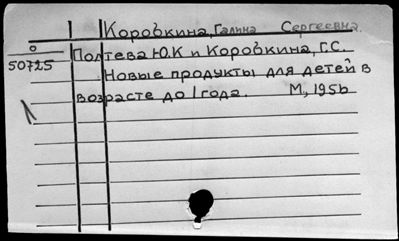 Коровкина, Галина Сергеевна.
о
50725
Полтева Ю.К и Коровкина, Г.С.
Новые продукты для детей в
возрасте до 1 года. М, 1956